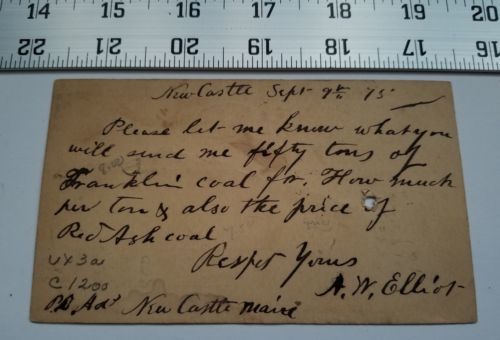 14 15 16 17 18 19 20
22 21 20 19 18 17 16
New Castle Sept 9th 75
Please let me know what you
will send me fifty tons of
Franklin coal for. How much
per ton & also the price of
Red Ash coal
Respct Yours
A. W. Elliot
UX3a
C1200
P.O. Ads New Castle Maine